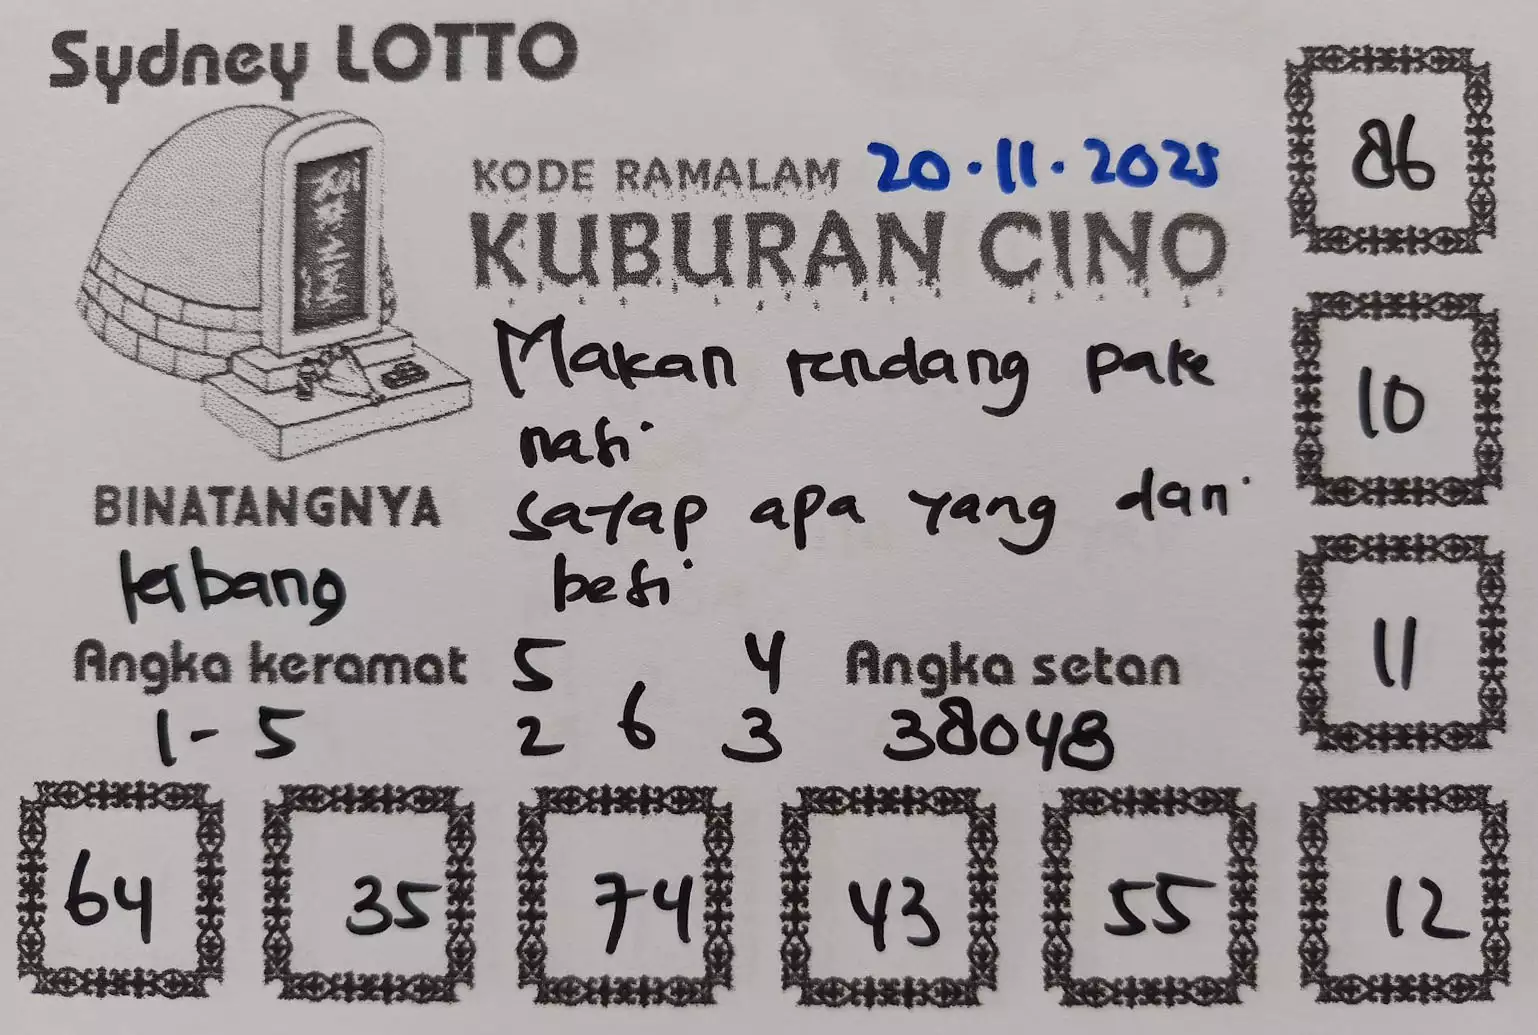 Sydney LOTTO
KODE RAMALAM 20.11.2025
KUBURAN CINO
Makan rendang pake
nasi
sayap apa yang dari
besi
BINATANGNYA
terbang
Angka keramat
1-5
5 4
6
2 3
Angka setan
38048
86
10
11
64 35 74 43 55 12